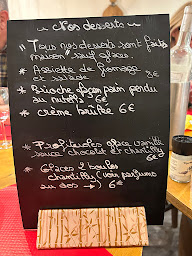 ~ Nos desserts ~
* Tous nos desserts sont faits
maison sauf glaces.
* Assiette de fromage
et salade 8€
* Brioche façon pain perdu
au nutella 6€
* crème brûlée 6€
* Profiteroles glace vanille
sauce chocolat et chantilly
6€
* Glaces 2 boules
chantilly (voir parfums
au dos →) 6€